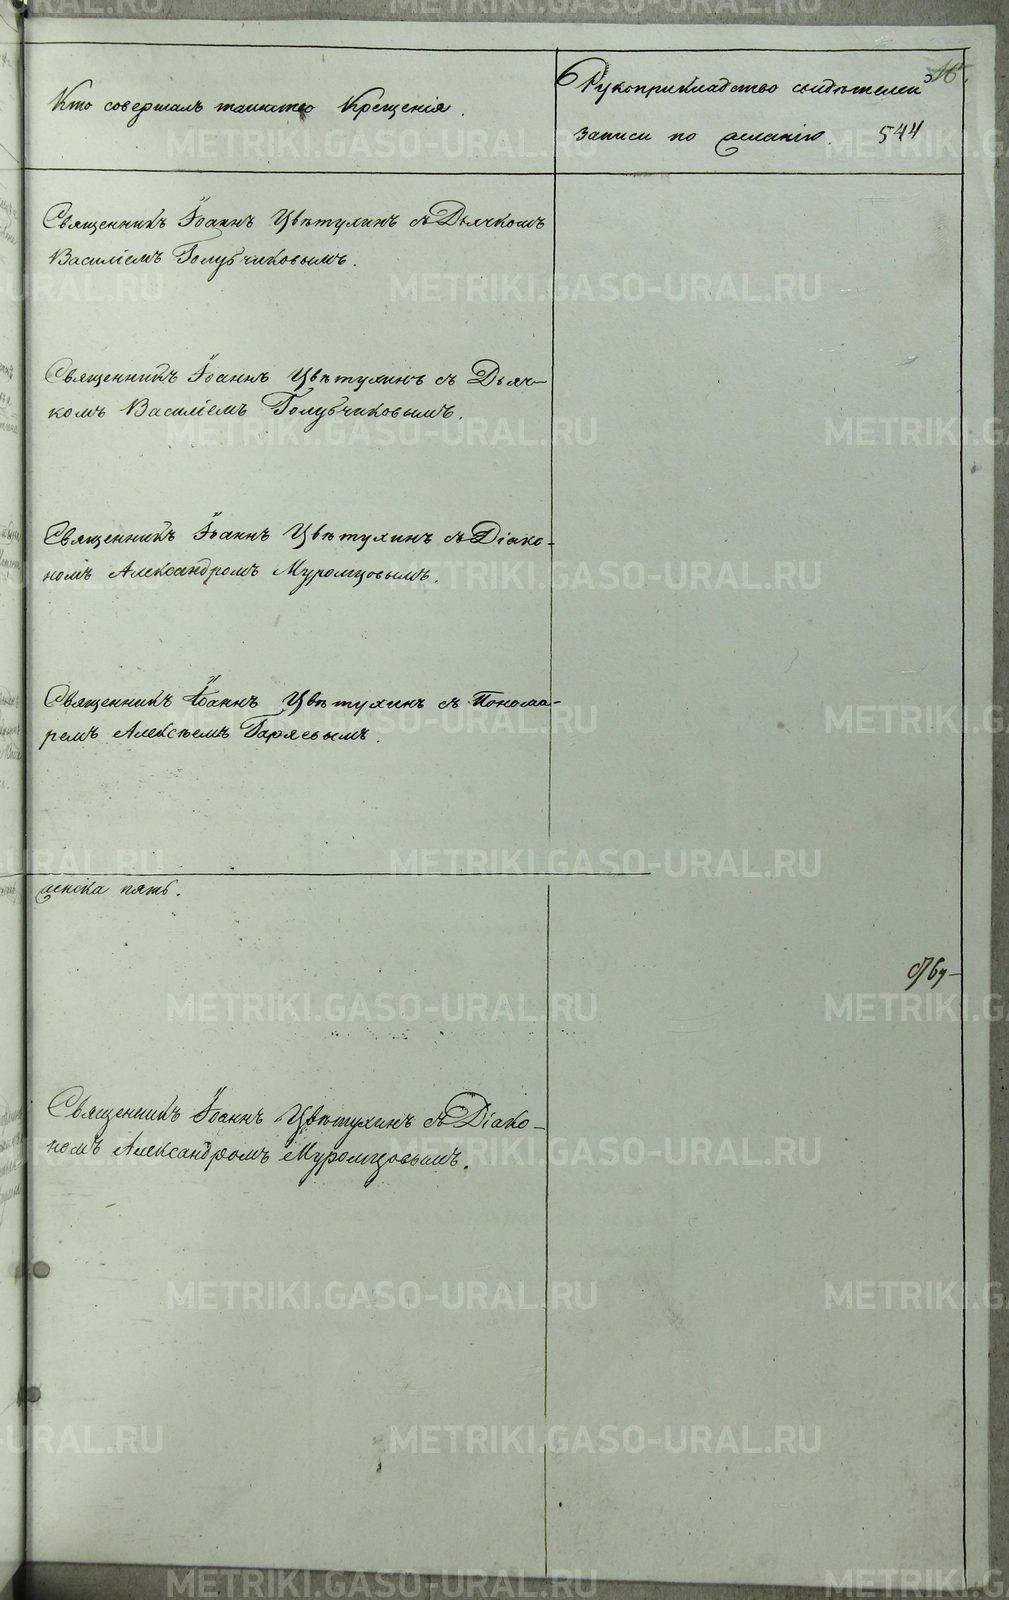 Кто совершалъ таинство Крещенія.
Рукоприкладство свидѣтелей
записи по желанію. 544
Священникъ Іоаннъ Цвѣтухинъ съ Дьячкомъ
Василіемъ Голубчиковымъ.
Священникъ Іоаннъ Цвѣтухинъ съ Дьяч-
комъ Василіемъ Голубчиковымъ.
Священникъ Іоаннъ Цвѣтухинъ съ Діако-
номъ Александромъ Муромцовымъ.
Священникъ Іоаннъ Цвѣтухинъ съ Понома-
ремъ Алексѣемъ Гаряевымъ.
женска пять.
Священникъ Іоаннъ Цвѣтухинъ съ Діако-
номъ Александромъ Муромцовымъ.
METRIKI.GASO-URAL.RU